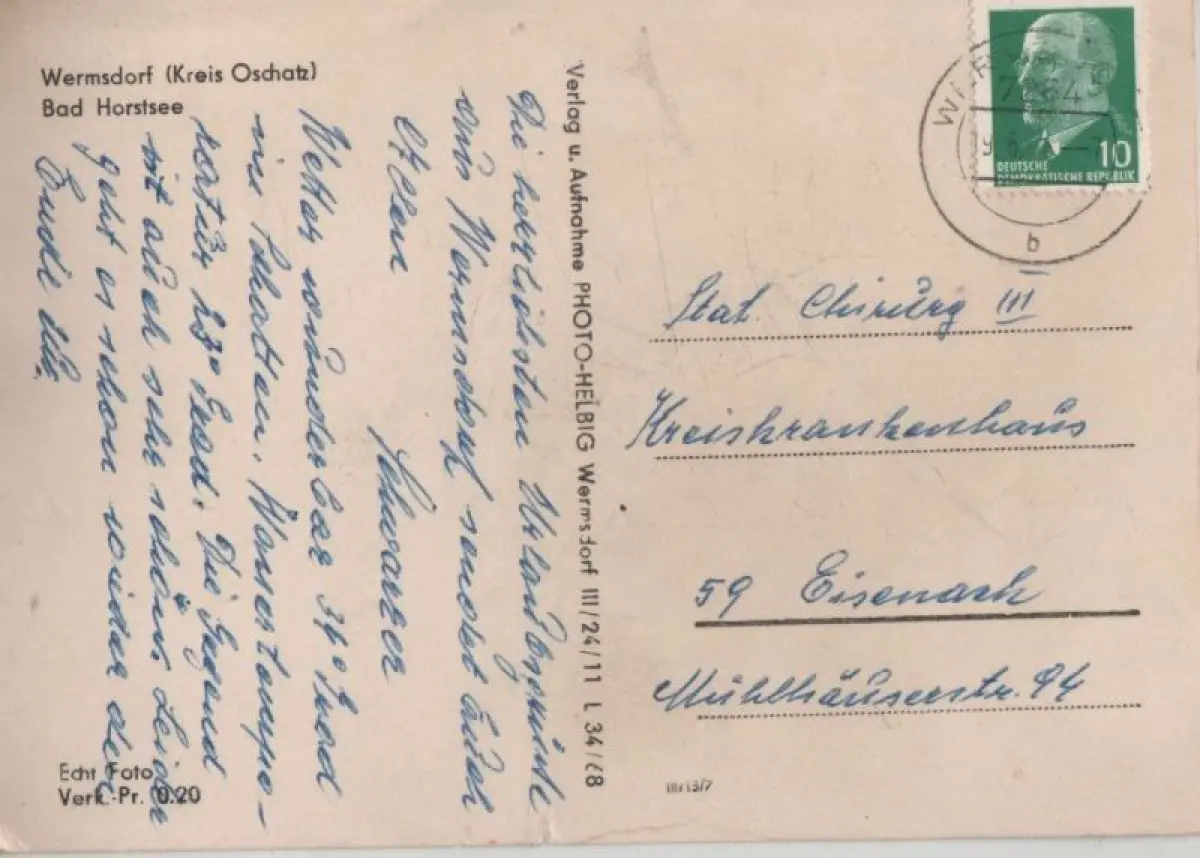 Wermsdorf (Kreis Oschatz)
Bad Horstsee
Die herzlichsten Urlaubsgrüße
aus Wermsdorf sendet Euch
allen
Schwarzer
Wetter wunderbar 34° Grad
im Schatten. Wassertempe-
ratur 23° Grad. Die Gegend
ist auch sehr schön. Leider
geht es schon wieder dem
Ende zu.
Echt Foto
Verk.-Pr. 0.20
Verlag u. Aufnahme PHOTO-HELBIG Wermsdorf III/24/11 L 34/68
DEUTSCHE
DEMOKRATISCHE REPUBLIK
10
b
Stat. Chirurg III
Kreiskrankenhaus
59 Eisenach
Mühlhäuserstr. 94
III/13/7